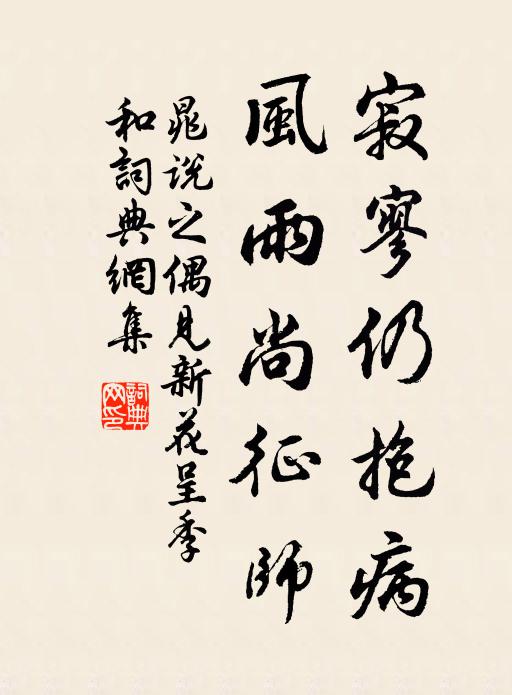 寂寥仍抱病
風雨尚征師
晁說之偶見新花呈季
和詞典網集
詞典網印